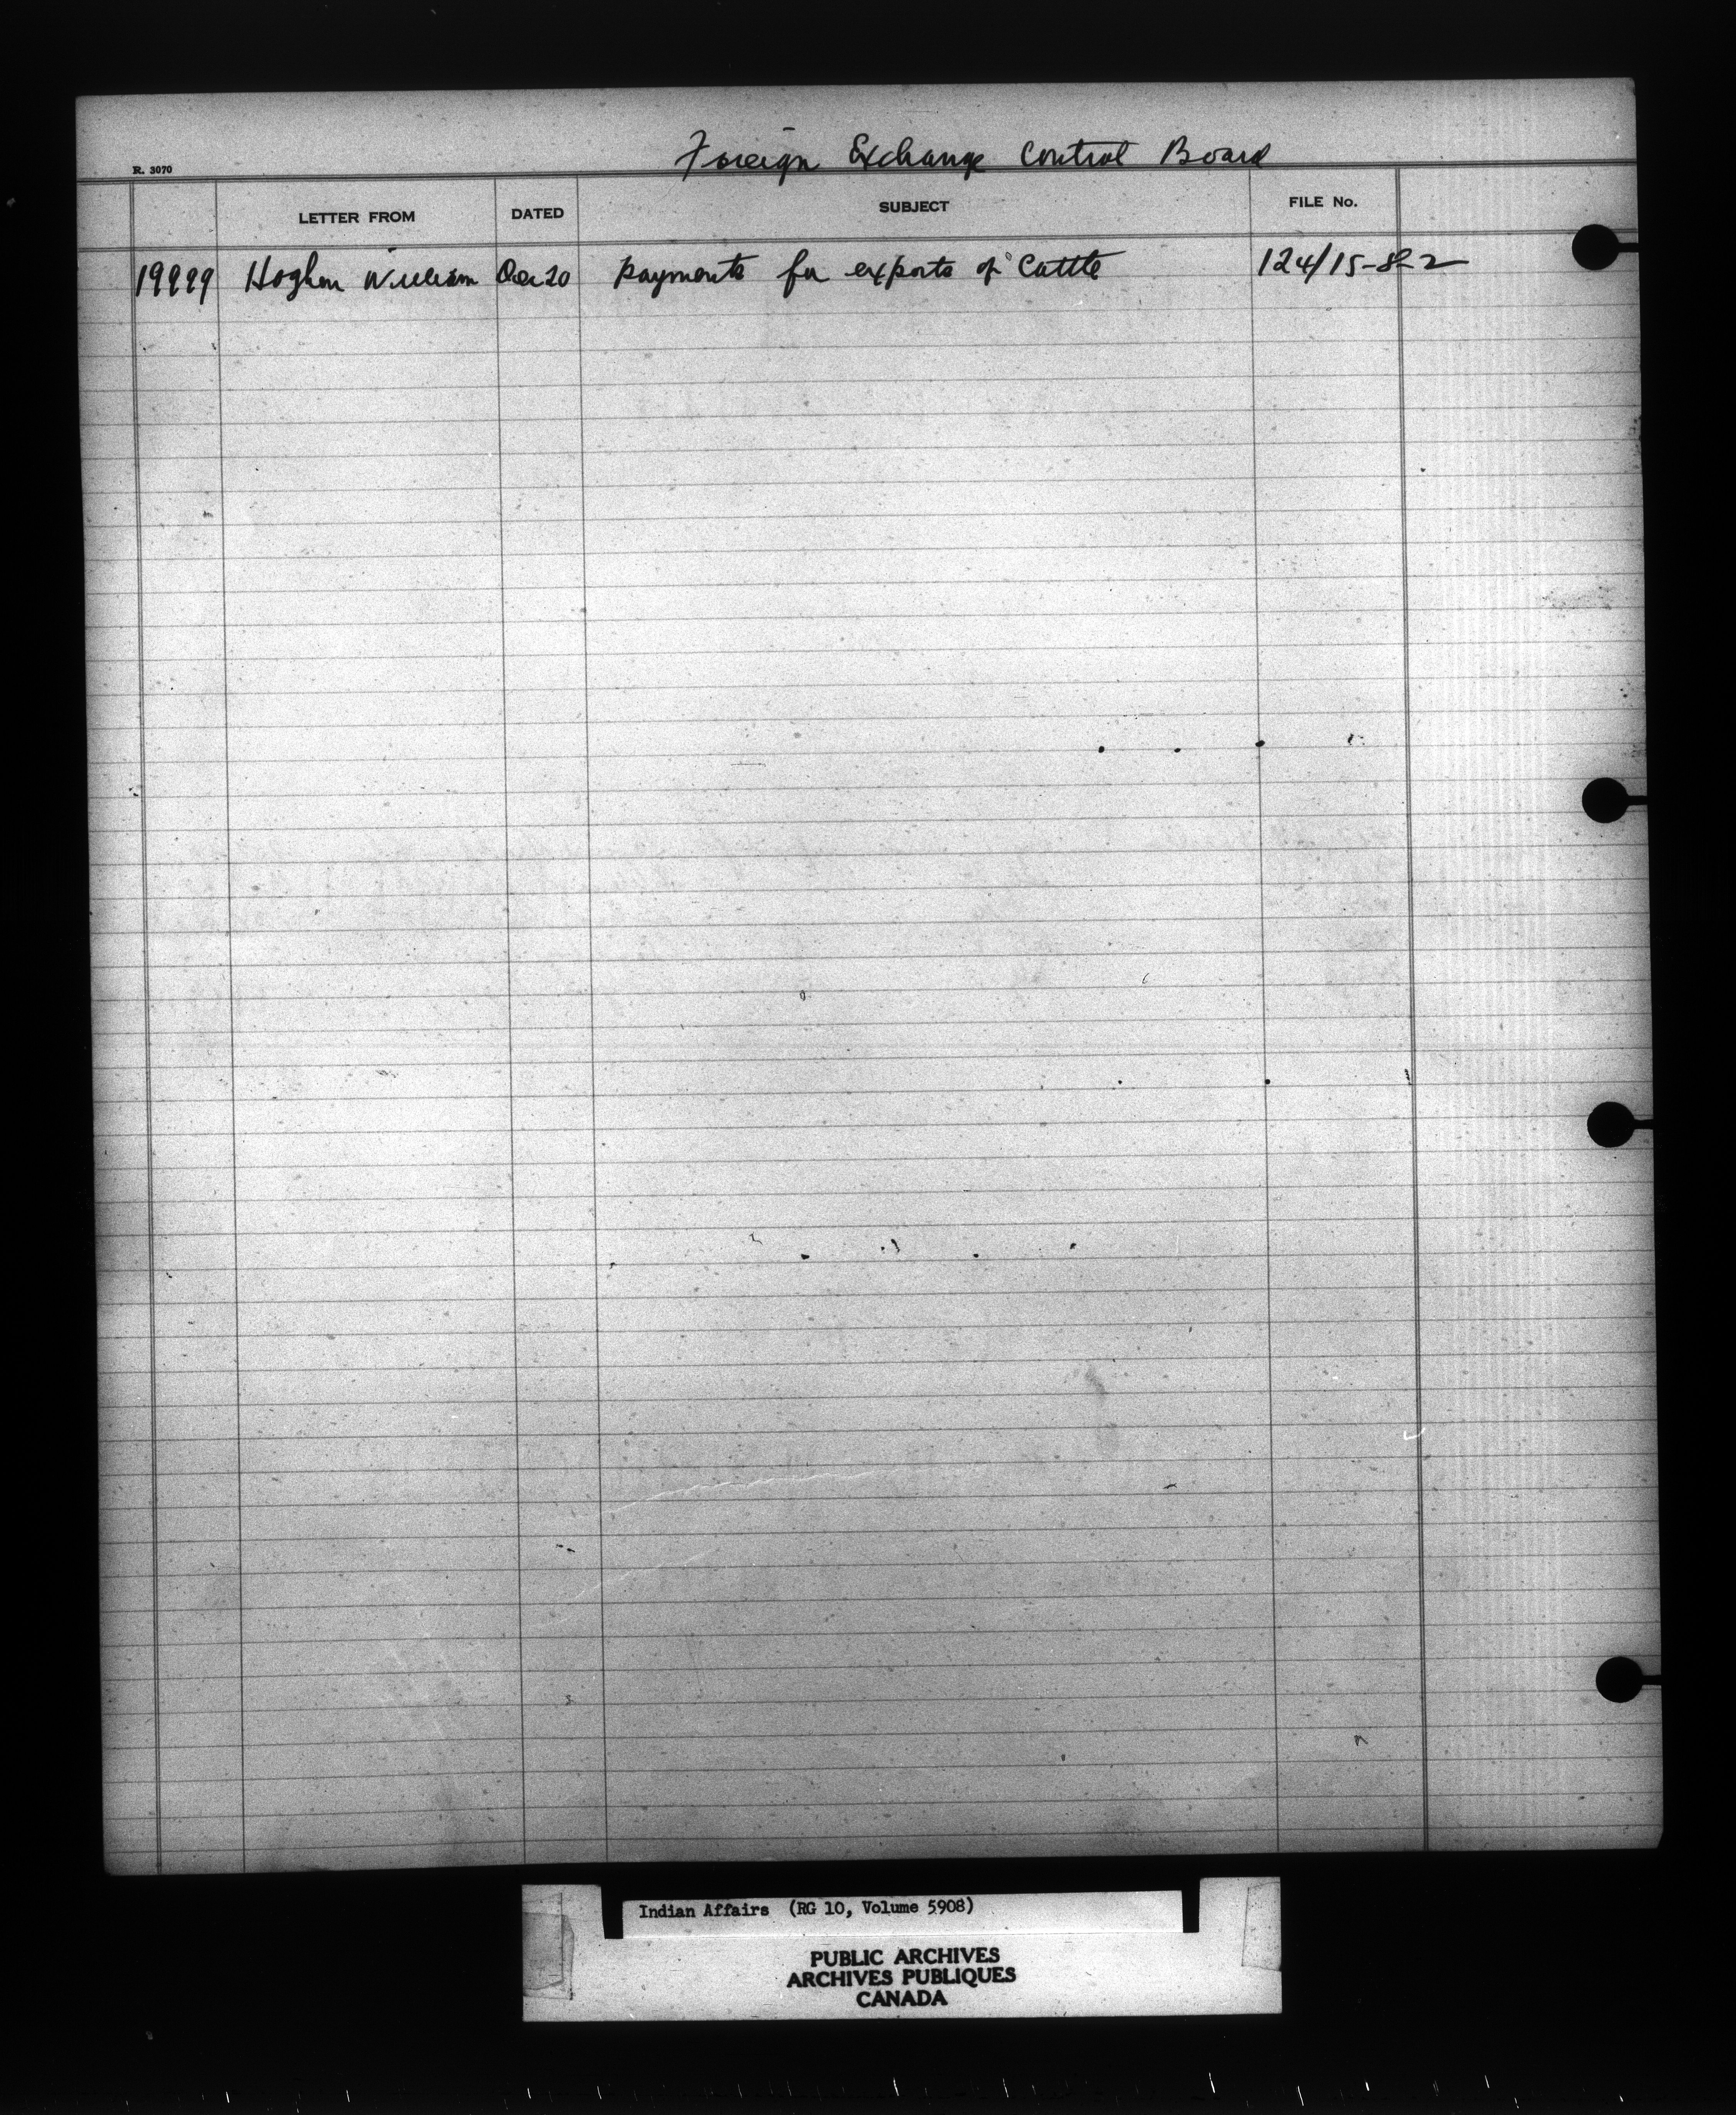 Foreign Exchange Control Board
R. 3070
LETTER FROM DATED SUBJECT FILE No.
19999 William 20 payments for exports of Cattle 124/15-8-2
Indian Affairs (RG 10, Volume 5908)
PUBLIC ARCHIVES
ARCHIVES PUBLIQUES
CANADA